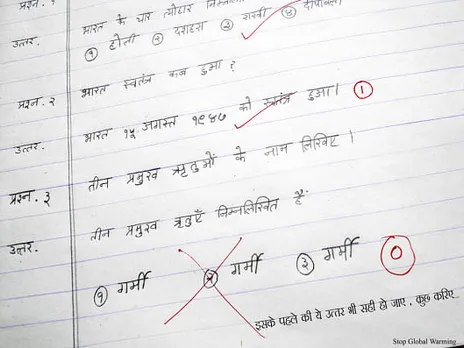 प्रश्न. १ भारत के चार त्योहार
उत्तर. ① होली ② दशहरा ③ राखी ④ दीपावली
प्रश्न. २ भारत स्वतंत्र कब हुआ ?
उत्तर. भारत १५ अगस्त १९४७ को स्वतंत्र हुआ। ①
प्रश्न. ३ तीन प्रमुख ऋतुओं के नाम लिखिए।
उत्तर. तीन प्रमुख ऋतुएँ निम्नलिखित हैं
① गर्मी ② गर्मी ③ गर्मी 0
इसके पहले की ये उत्तर भी सही हो जाए, कुछ करिए..
Stop Global Warming